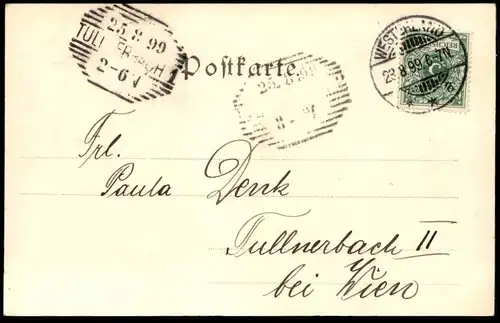 25.8.99
TULLNERBACH
2-6N 1
Postkarte.
25.8.99
8-
WESTERLAND
23.8.99.6-7N.
* * a
Frl.
Paula Denk
Tullnerbach II
bei Wien